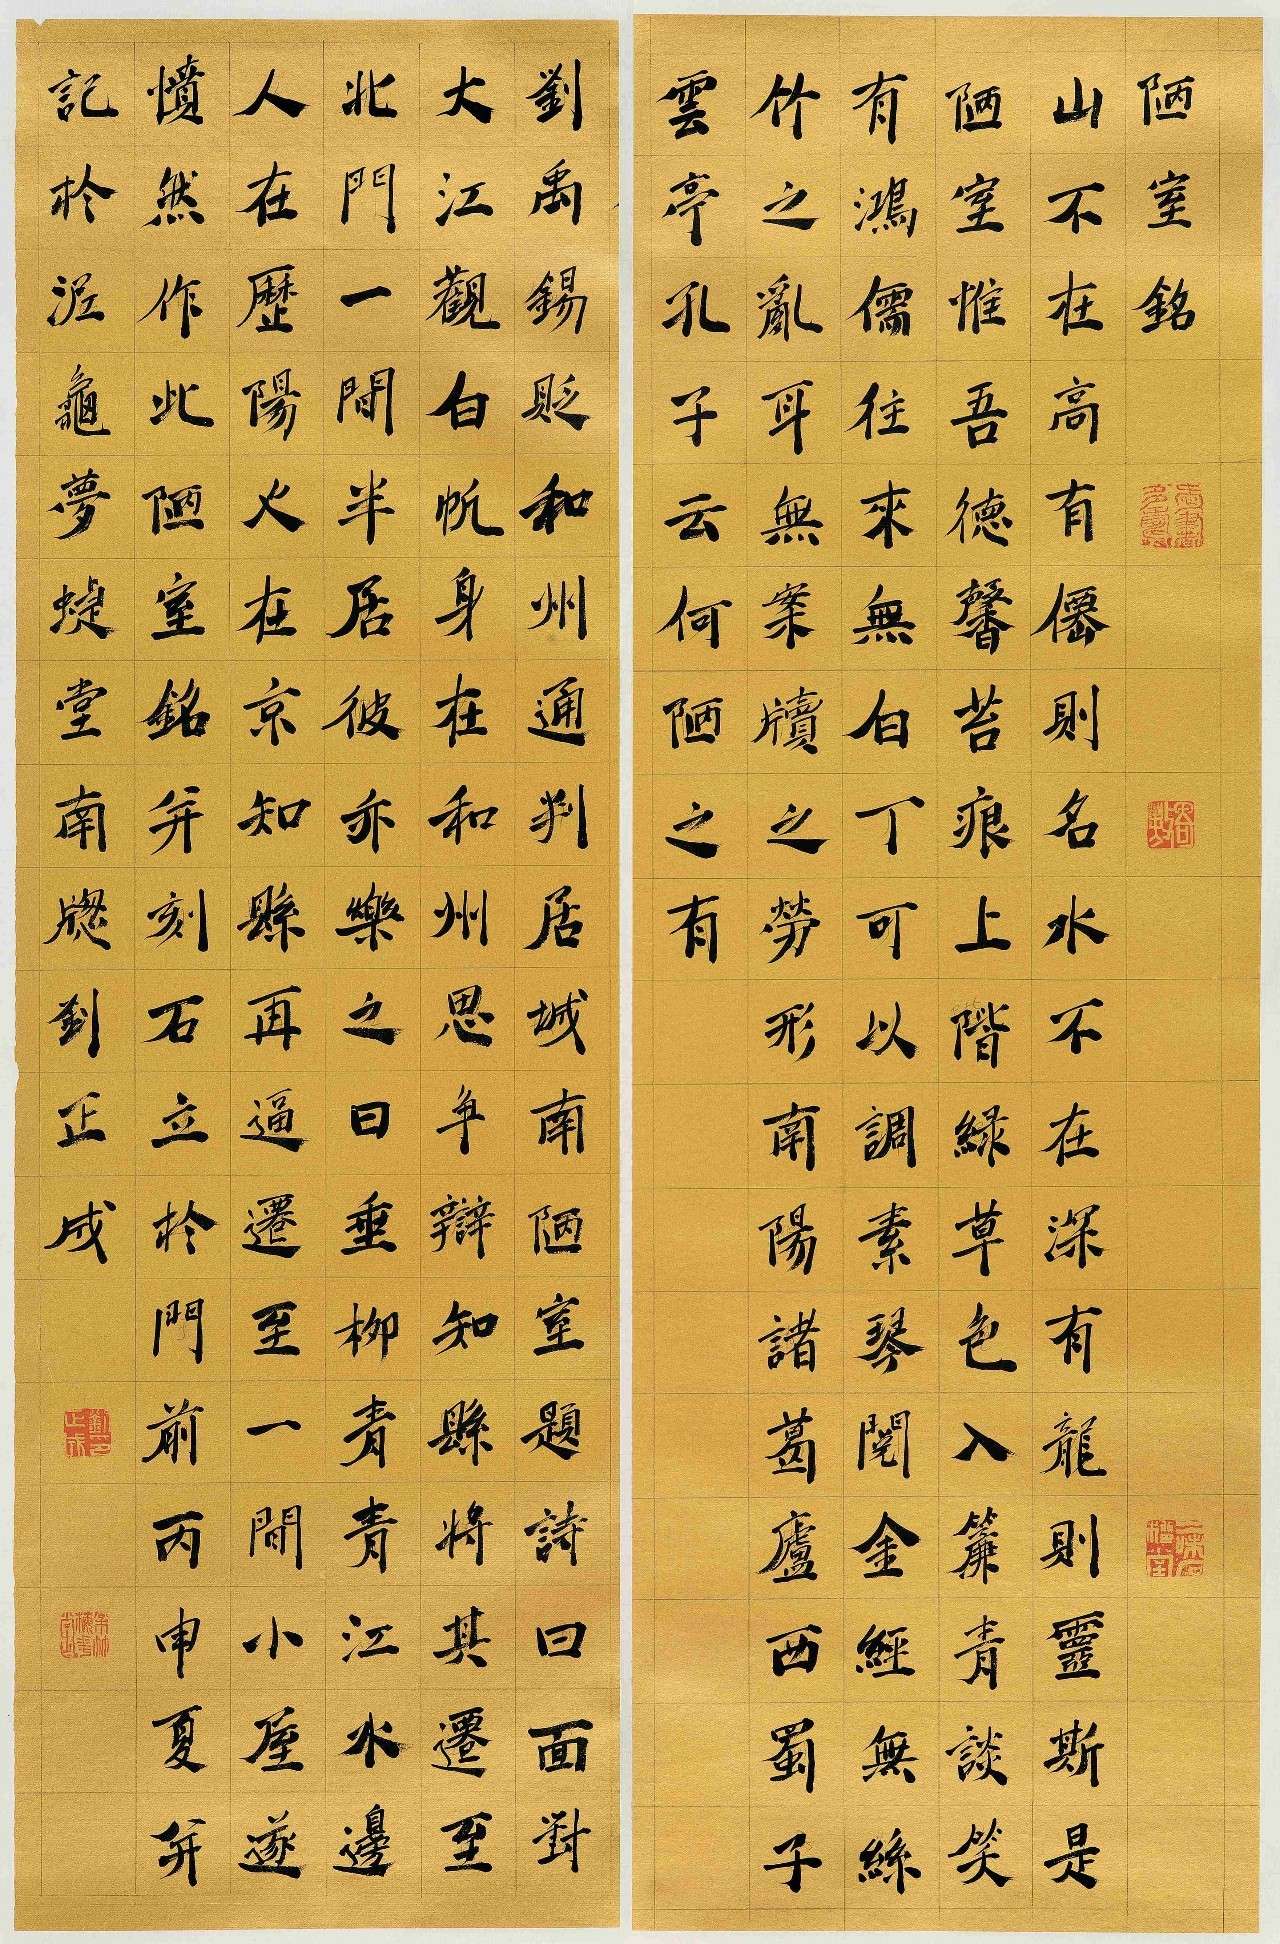 陋室銘
山不在高有僊則名水不在深有龍則靈斯是
陋室惟吾德馨苔痕上階綠草色入簾青談笑
有鴻儒往來無白丁可以調素琴閱金經無絲
竹之亂耳無案牘之勞形南陽諸葛廬西蜀子
雲亭孔子云何陋之有
劉禹錫貶和州通判居城南陋室題詩曰面對
大江觀白帆身在和州思爭辯知縣將其遷至
北門一間半居彼亦樂之曰垂柳青青江水邊
人在歷陽心在京知縣再逼遷至一間小屋遂
憤然作此陋室銘并刻石立於門前丙申夏并
記於泥龜夢蜨堂南牕劉正成